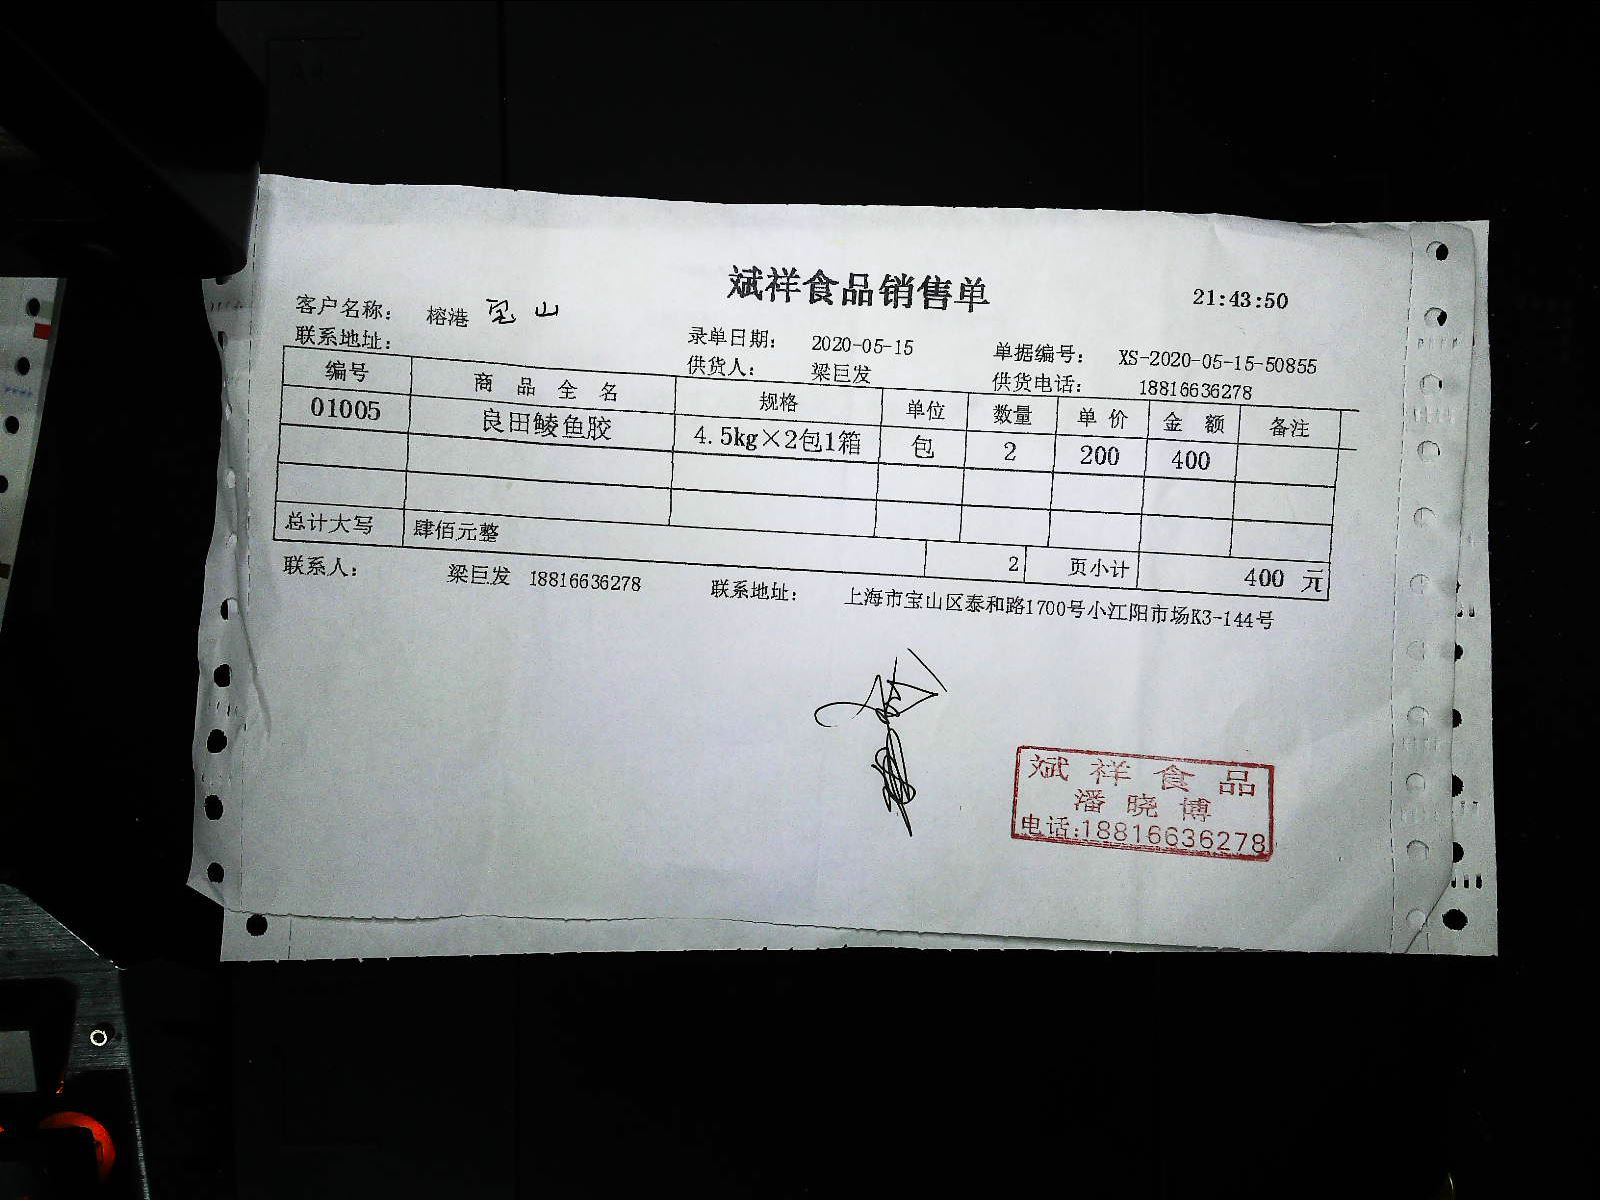 斌祥食品销售单
21:43:50
客户名称： 榕港 宝山
联系地址： 录单日期： 2020-05-15 单据编号： XS-2020-05-15-50855
供货人： 梁巨发 供货电话： 18816636278
编号 商品全名 规格 单位 数量 单价 金额 备注
01005 良田鲮鱼胶 4.5kg×2包1箱 包 2 200 400
总计大写 肆佰元整 2 页小计 400 元
联系人： 梁巨发 18816636278 联系地址： 上海市宝山区泰和路1700号小江阳市场K3-144号
斌祥食品
潘晓博
电话:18816636278